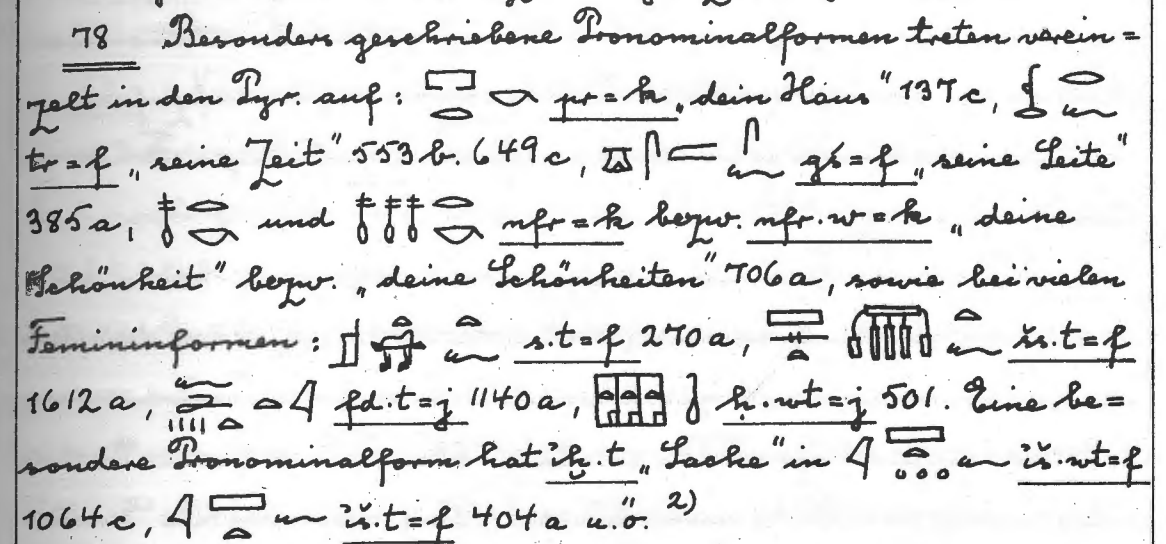 78 Besonders geschriebene Pronominalformen treten verein=
zelt in den Pyr. auf: 𓉐𓂋 𓂋𓎡 pr=k „dein Haus“ 137c, 𓂋𓆑
tr=f „seine Zeit“ 553b. 649c, 𓎼𓋴 𓆑 gś=f „seine Seite“
385a, 𓄤𓂋𓎡 und 𓄤𓄤𓄤𓂋𓎡 nfr=k bezw. nfr.w=k „deine
Schönheit“ bezw. „deine Schönheiten“ 706a, sowie bei vielen
Femininformen: 𓊨 𓏏 𓏏𓆑 s.t=f 270a, 𓈙𓊃𓏏 𓏏𓆑 šs.t=f
1612a, 𓆑𓂧𓏏𓏽 𓏏𓇋 fd.t=j 1140a, 𓉗𓉗𓉗 𓇋 ḥ.wt=j 501. Eine be=
sondere Pronominalform hat iḫ.t „Sache“ in 𓇋𓈙𓏏𓏥𓆑 iš.wt=f
1064c, 𓇋𓈙𓏏𓆑 iš.t=f 404a u.ö. 2)